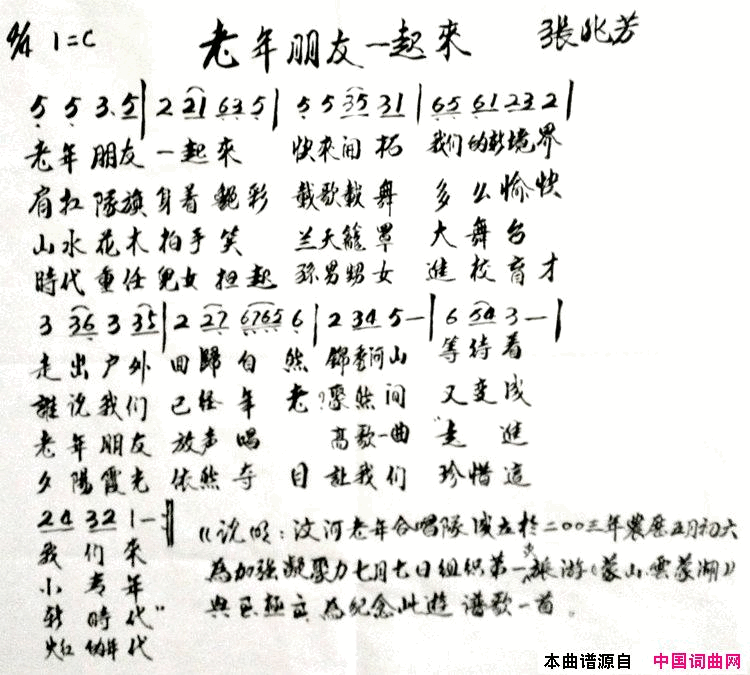 4/4 1=C 老年朋友一起來 張兆芳
5 5 3.5 | 2 21 63 5 | 5 5 35 31 | 65 61 23 2 |
老年朋友一起來 快來開拓 我们的新境界
肩扛隊旗身着艳彩 載歌載舞 多么愉快
山水花木拍手笑 兰天籠罩 大舞台
時代重任兒女担起 孫男甥女 進校育才
3 36 3 35 | 2 27 6765 6 | 2 34 5 — | 6 54 3 — |
走出户外回歸自然 錦秀河山 等待着
誰说我们已经年老?聚然间 又变成
老年朋友放声唱 高歌一曲 "走進
夕陽霞光依然夺目 让我们 珍惜這
24 32 1 —
我们來
小青年
新時代"
火红的年代
《说明:汶河老年合唱隊成立於二〇〇三年農历正月初六
為加强凝聚力七月七日组织第一步旅游(蒙山.雲蒙湖)》
為纪念此遊谱歌一首。
本曲谱源自 中国词曲网